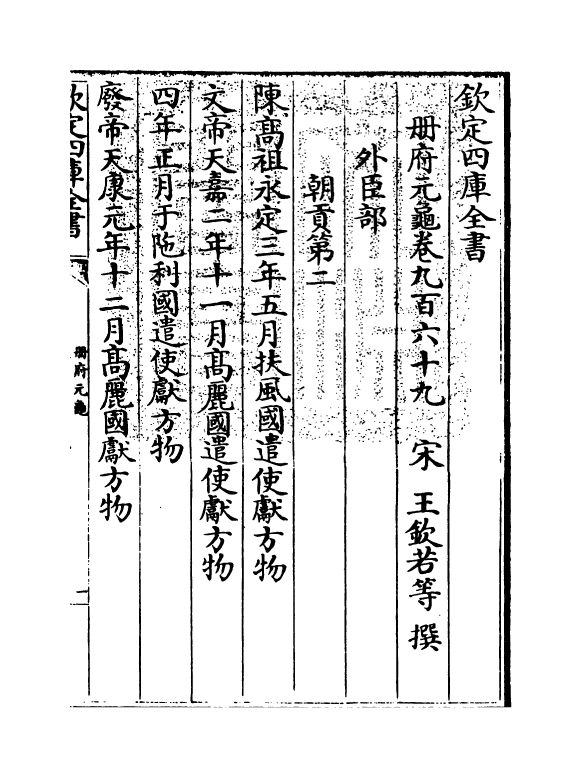 欽定四庫全書
册府元龜卷九百六十九　宋　王欽若等　撰
外臣部
朝貢第二
陳髙祖永定三年五月扶風國遣使獻方物
文帝天嘉二年十一月髙麗國遣使獻方物
四年正月于陁利國遣使獻方物
廢帝天康元年十二月髙麗國獻方物
欽定四庫全書
册府元龜